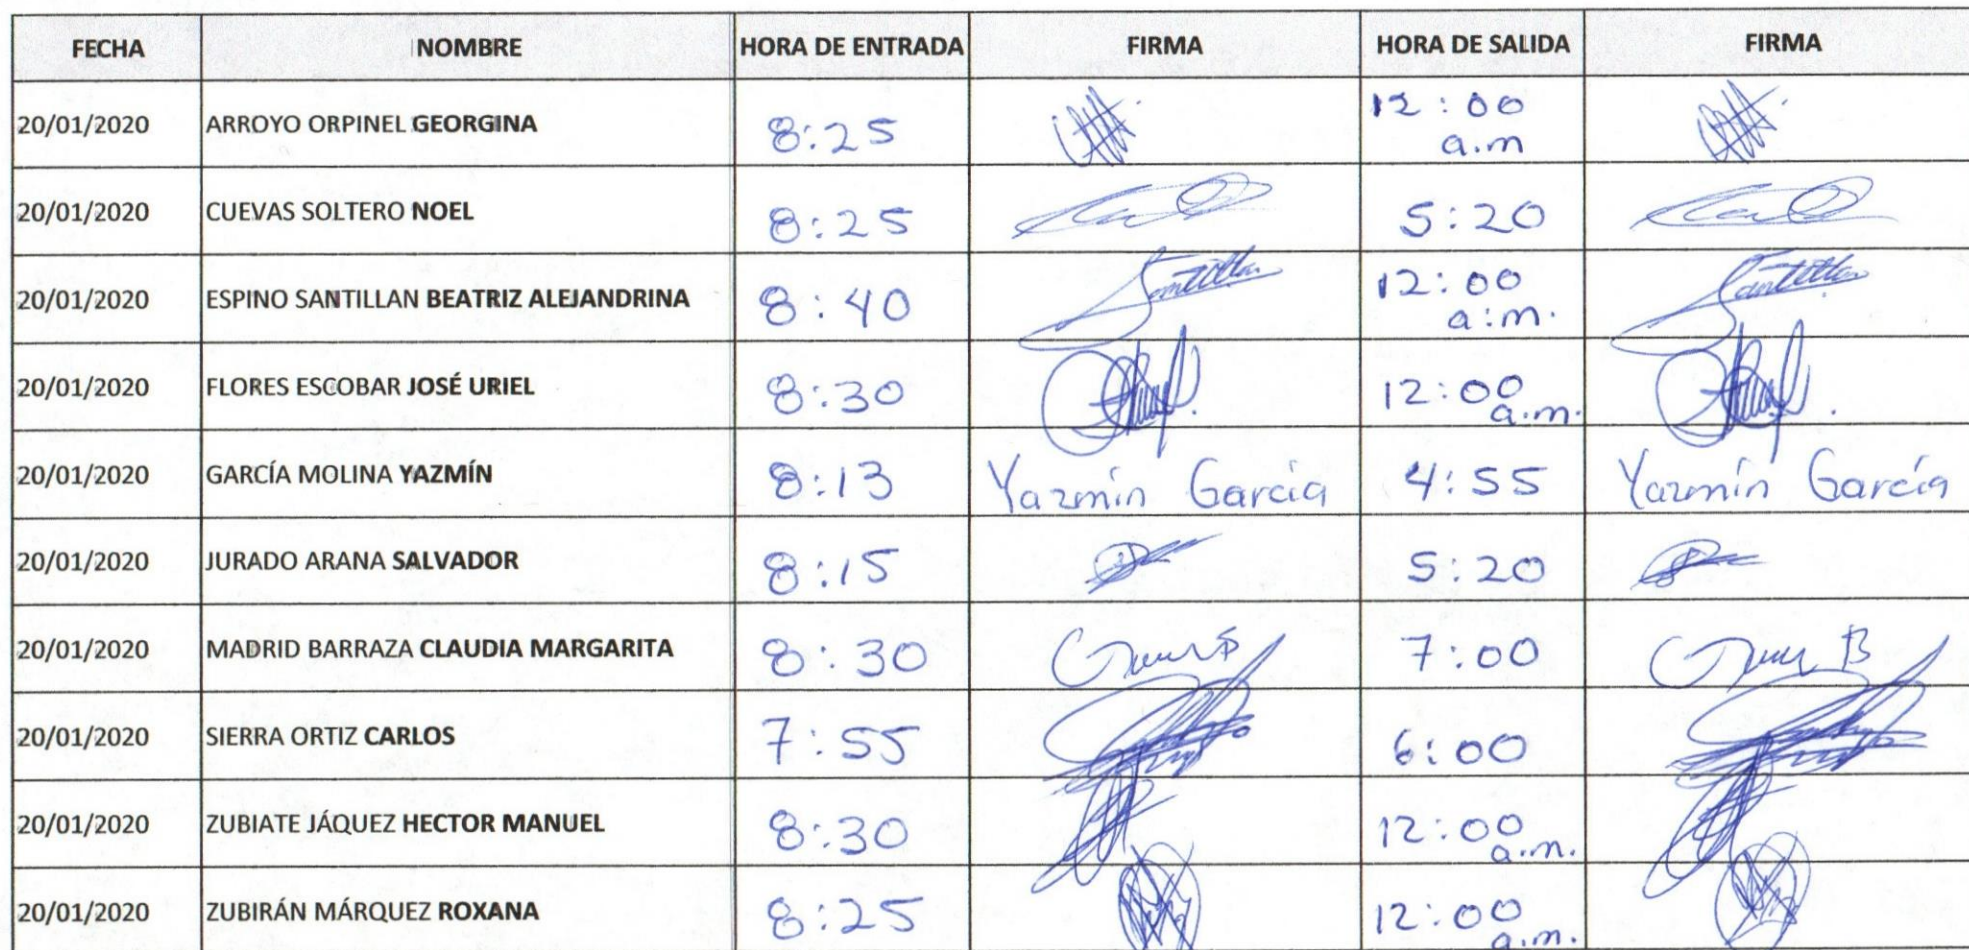 FECHA NOMBRE HORA DE ENTRADA FIRMA HORA DE SALIDA FIRMA
20/01/2020 ARROYO ORPINEL GEORGINA 8:25 12:00 a.m
20/01/2020 CUEVAS SOLTERO NOEL 8:25 5:20
20/01/2020 ESPINO SANTILLAN BEATRIZ ALEJANDRINA 8:40 Santillan 12:00 a.m. Santillan
20/01/2020 FLORES ESCOBAR JOSÉ URIEL 8:30 12:00 a.m.
20/01/2020 GARCÍA MOLINA YAZMÍN 8:13 Yazmín García 4:55 Yazmín García
20/01/2020 JURADO ARANA SALVADOR 8:15 5:20
20/01/2020 MADRID BARRAZA CLAUDIA MARGARITA 8:30 7:00
20/01/2020 SIERRA ORTIZ CARLOS 7:55 6:00
20/01/2020 ZUBIATE JÁQUEZ HECTOR MANUEL 8:30 12:00 a.m.
20/01/2020 ZUBIRÁN MÁRQUEZ ROXANA 8:25 12:00 a.m.